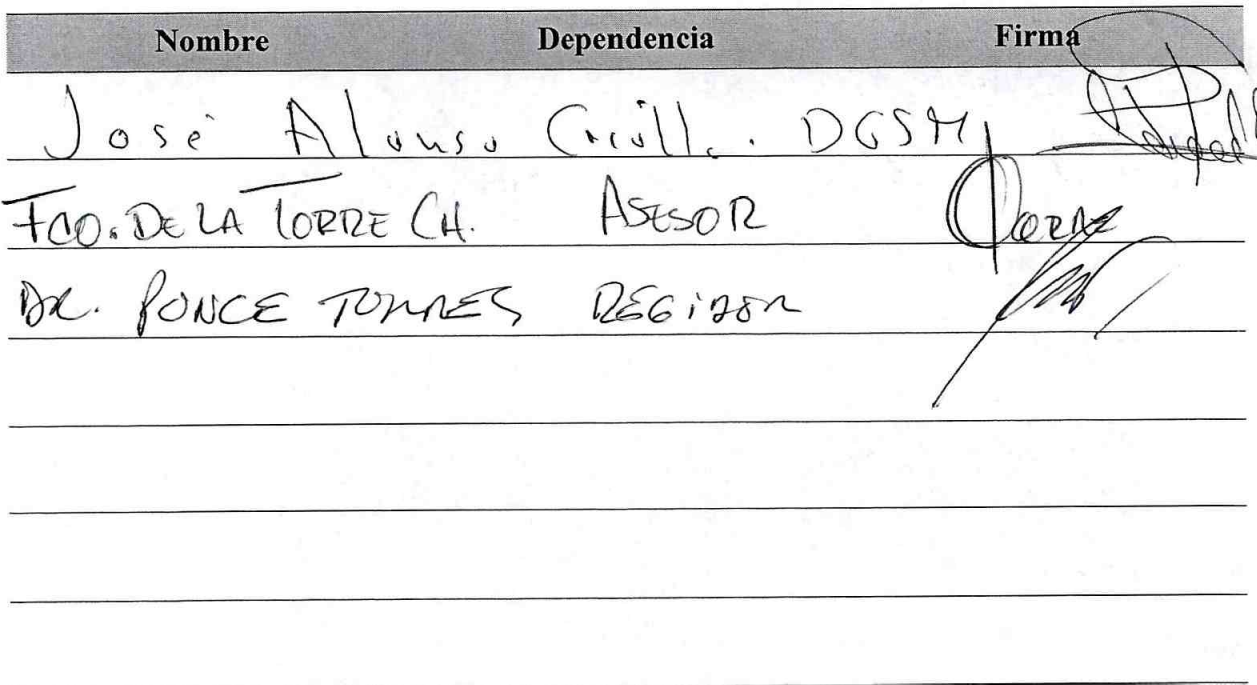 Nombre Dependencia Firma
José Alonso DGSM
Fco. DE LA TORRE CH. ASESOR
DR. PONCE TORRES REGIDOR